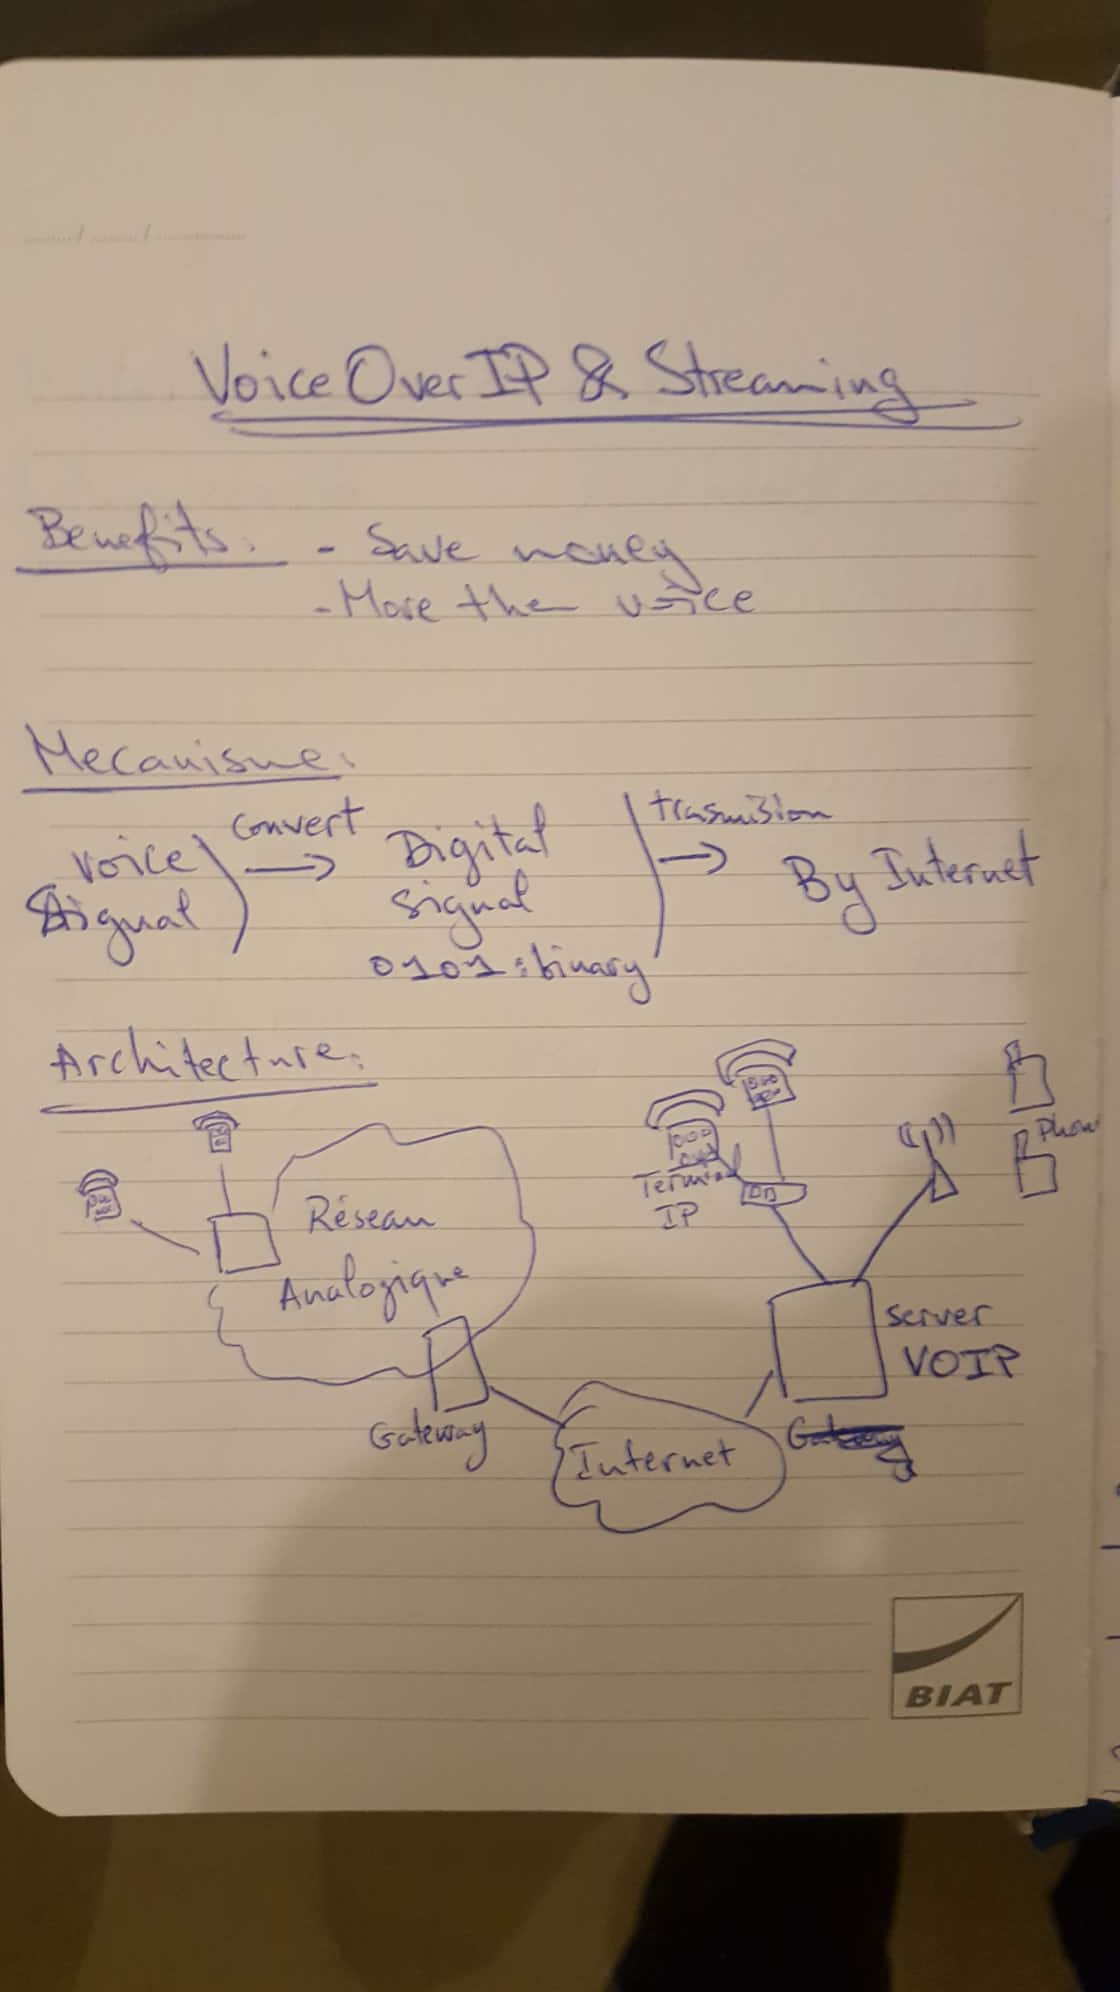 Voice Over IP & Streaming
Benefits: - Save money
- More the voice
Mecanisme:
voice signal convert → Digital signal 0101:binary trasmision → By Internet
Architecture:
Réseau
Analogique
Gateway
Internet
Terminal
IP
Phon
server
VOIP
BIAT